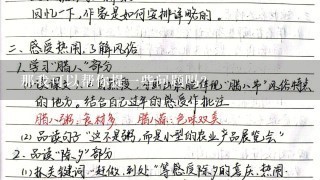 回忆一下，作家是如何安排详略的。
二、感受热闹，了解风俗
1. 学习"腊八"部分
那我可以帮你提一些问题吗？
的地方。结合自己过年的感受作批注
腊八粥：食材多 腊八蒜：色味双美
(2) 品读句子"这不是粥，而是小型的农业产品展览会"
2. 品读"除夕"部分
(1) 抓关键词"赶做，到处"等感受除夕的喜庆、热闹